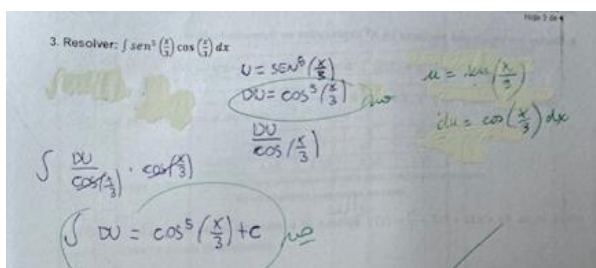 Hoja 3 de 4
3. Resolver: ∫ sen⁵ (x/3) cos (x/3) dx
U = SEN⁵ (x/3)
DU = cos⁵ (x/3) no
DU / cos (x/3)
u = sen (x/3)
du = cos (x/3) dx
∫ DU / cos(x/3) · cos(x/3)
∫ DU = cos⁵ (x/3) + c no